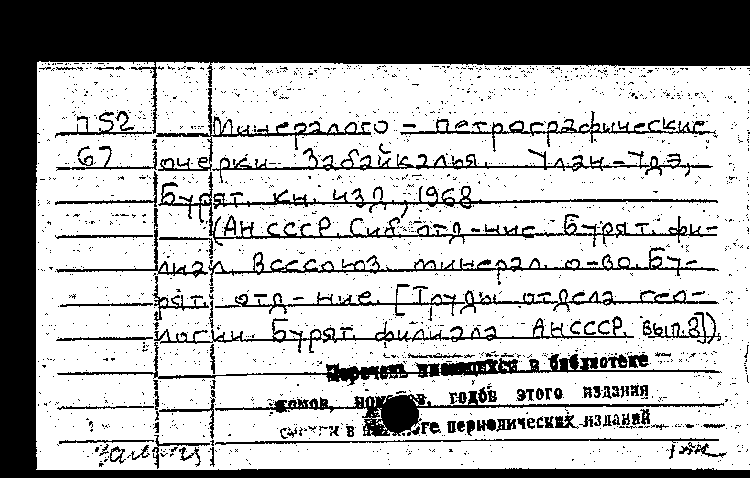 П52 Минералого - петрографические
67 очерки Забайкалья. Улан-Удэ,
Бурят. кн. изд., 1968.
(АН СССР. Сиб. отд-ние. Бурят. фи-
лиал. Всесоюз. минерал. о-во. Бу-
рят. отд-ние. [Труды отдела гео-
логии. Бурят. филиала АН СССР. вып. 8]).
Перечень имеющихся в библиотеке
томов, номеров, годов этого издания
в периодических изданий